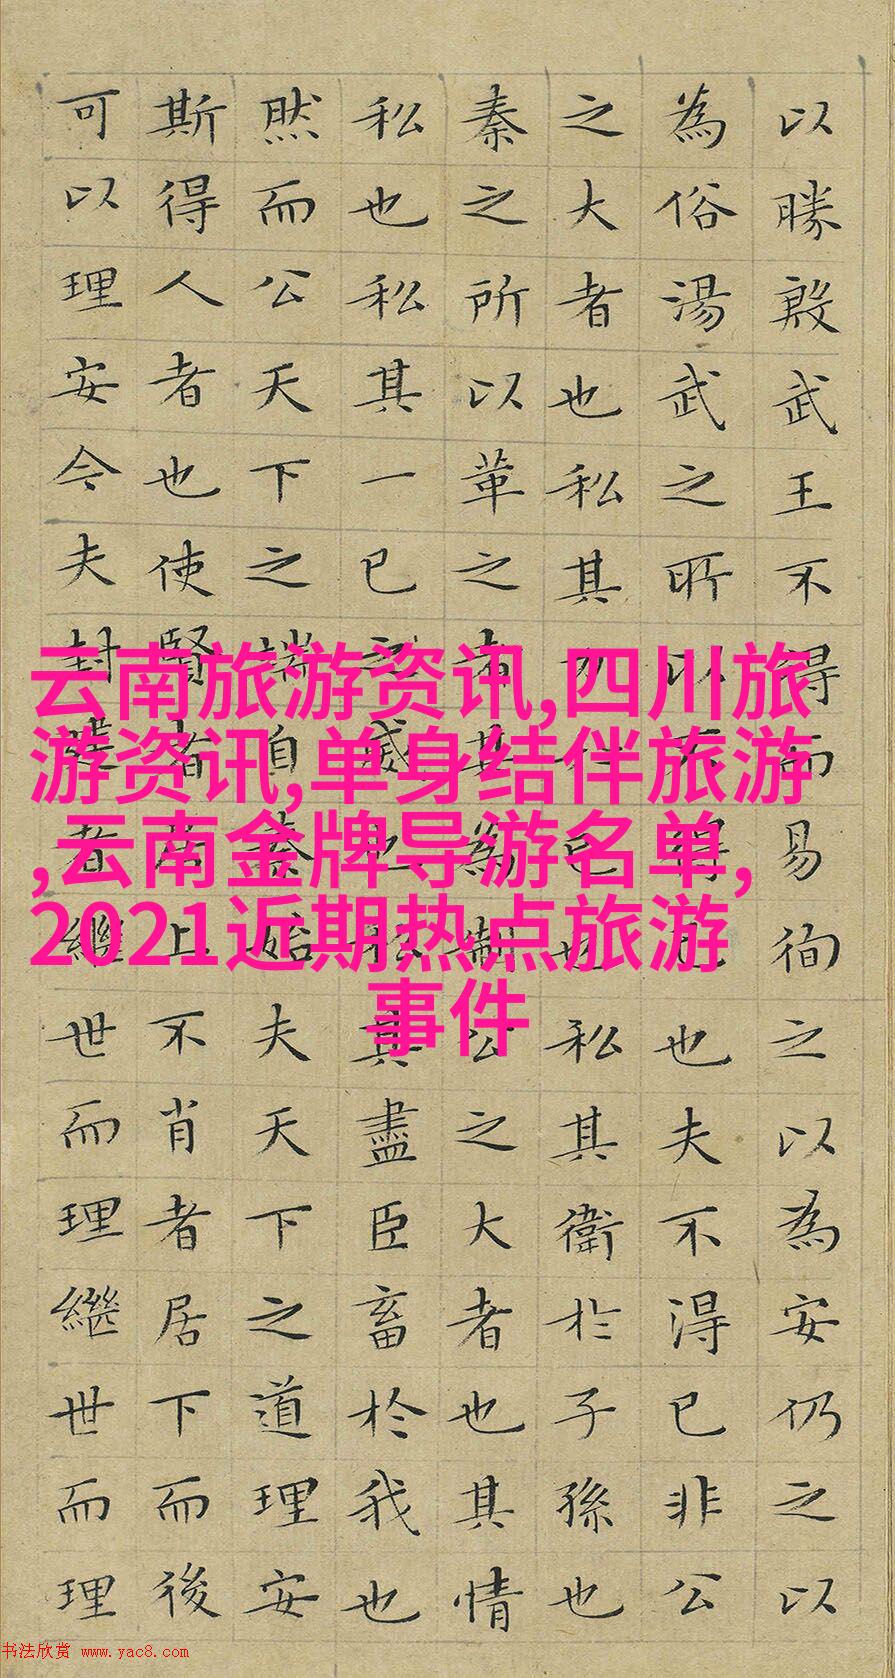 以勝殷武王不得而易徇之以為安仍之以
為俗湯武之所以不得已也夫不得已非公
之大者也私其力於己也私其衛於子孫也
秦之所以革之者其為制公之大者也其情
私也私其一己之威也私其盡臣畜於我也
然而公天下之端自秦始夫天下之道理安
斯得人者也使賢者居上不肖者居下而後
可以理安今夫封建者繼世而理繼世而理
云南旅游资讯,四川旅
游资讯,单身结伴旅游
,云南金牌导游名单,
2021近期热点旅游
事件
书法欣赏 www.yac8.com